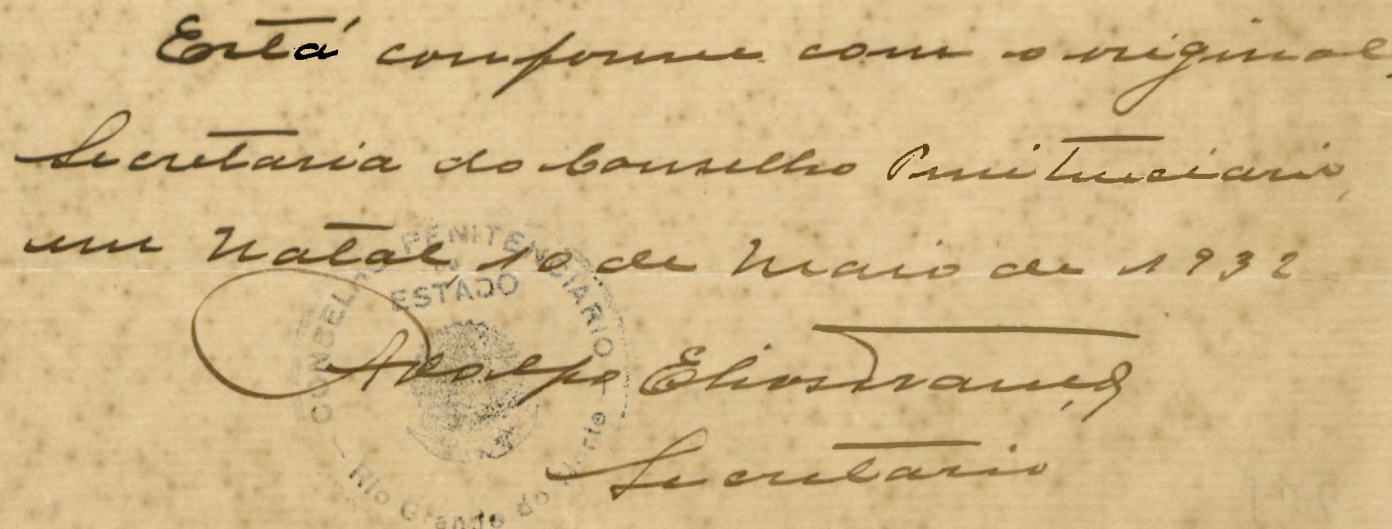 Está conforme com o original,
Secretaria do Conselho Penitenciario,
em Natal, 10 de Maio de 1932
CONSELHO PENITENCIARIO
DO
ESTADO
Rio Grande do Norte
Adolpho
Secretario